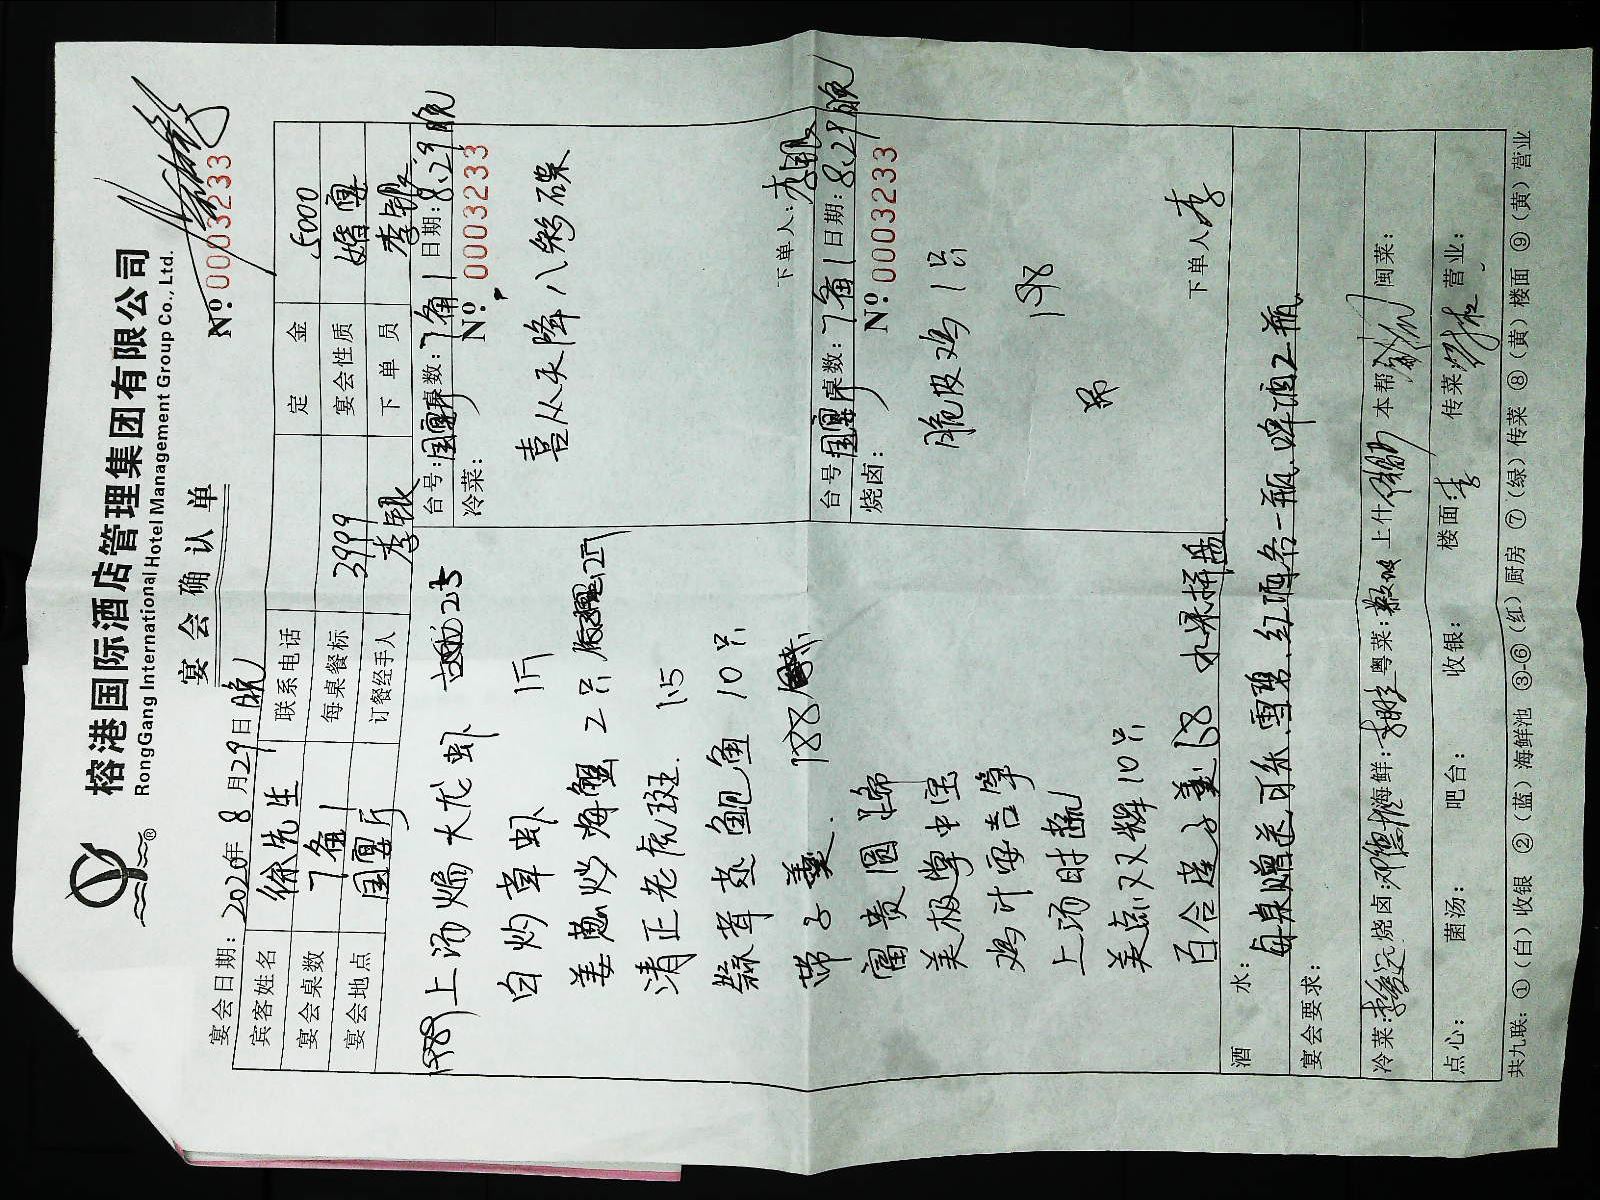 榕港国际酒店管理集团有限公司
RongGang International Hotel Management Group Co., Ltd.
宴会确认单
№ 0003233
宴会日期：2020年 8 月 29 日 晚
宾客姓名 徐先生 联系电话 定金 5000
宴会桌数 7备1 每桌餐标 3999 宴会性质 婚宴
宴会地点 国宴厅 订餐经手人 李银 下单员 李银
上汤焗大龙虾
白灼草虾 1斤
姜葱炒海蟹 2只
清正老虎斑 1.5
蒜茸蒸鲍鱼 10只
带子羹 188
富贵圆蹄
美极掌中宝
鸡汁
上汤时蔬
美点双辉 10只
百合莲子羹 168 水果拼盘
台号：国宴厅 桌数：7备1 日期：8.29晚
冷菜： № 0003233
喜从天降八彩碟
下单人：李银
台号 国宴厅 桌数：7备1 日期：8.29晚
烧卤： № 0003233
脆皮鸡1只
下单人 李
酒水： 每桌赠送可乐、雪碧、红酒各一瓶，啤酒2瓶
宴会要求：
冷菜： 烧卤：邓德 海鲜： 粤菜： 上什 本帮 闽菜：
点心： 菌汤： 吧台： 收银： 楼面 李 传菜 营业：
共九联：①（白）收银 ②（蓝）海鲜池 ③-⑥（红）厨房 ⑦（绿）传菜 ⑧（黄）楼面 ⑨（黄）营业